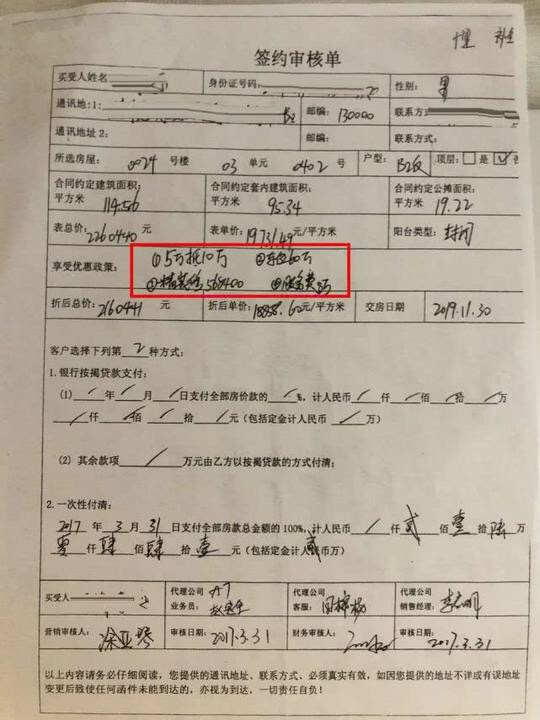 签约审核单
买受人姓名 身份证号码: 性别: 男
通讯地:1: 邮编: 130000 联系方
通讯地址2: 邮编: 联系方式:
所选房屋: 0024 号楼 03 单元 0402 号 户型: B2反 顶层: □ 是 ☑ 否
合同约定建筑面积: 合同约定套内建筑面积: 合同约定公摊面积:
平方米 114.56 平方米 95.34 平方米 19.22
表总价: 2260440 元 表单价: 19731.49 元/平方米 阳台类型: 封闭
享受优惠政策: ①5万抵10万 ②车位60万
精装修568400 ④服务费5万
折后总价: 2160441 元 折后单价: 18858.60 元/平方米 交房日期 2019.11.30
客户选择下列第 2 种方式:
1.银行按揭贷款支付:
(1) / 年 / 月 / 日支付全部房价款的 / %, 计人民币 / 仟 / 佰 / 拾 / 万
/ 仟 / 佰 / 拾 / 元 (包括定金计人民币 / 万)
(2) 其余款项 / 万元由乙方以按揭贷款的方式付清;
2.一次性付清:
2017 年 3 月 31 日支付全部房款总金额的 100%, 计人民币 / 仟 贰 佰 壹 拾 陆 万
零 仟 肆 佰 肆 拾 壹 元 (包括定金计人民币 贰 万)
买受人 代理公司业务员: 代理公司客服: 代理公司销售经理:
营销审核人: 审核日期: 2017.3.31 财务审核人: 审核日期: 2017.3.31
以上内容请务必仔细阅读, 您提供的通讯地址、联系方式、必须真实有效, 如因您提供的地址不详或有误地址
变更后致使任何函件未能到达的, 亦视为到达, 一切责任自负!